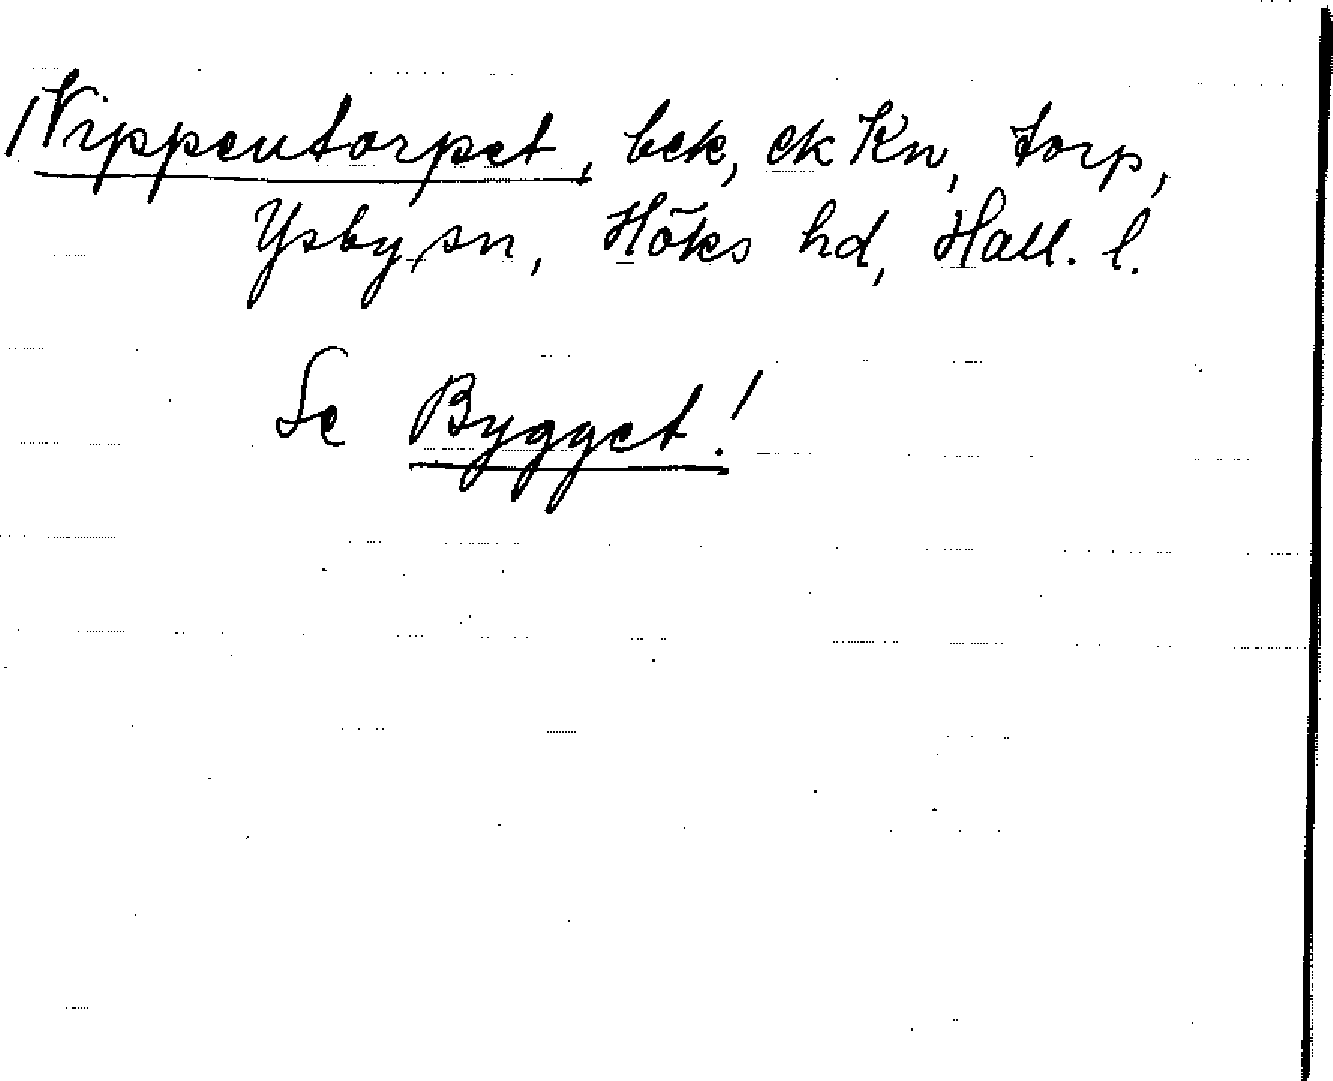 Nippentorpet, bek, ek Kn, torp,
Ysby sn, Höks hd, Hall. l.
Se Bygget!